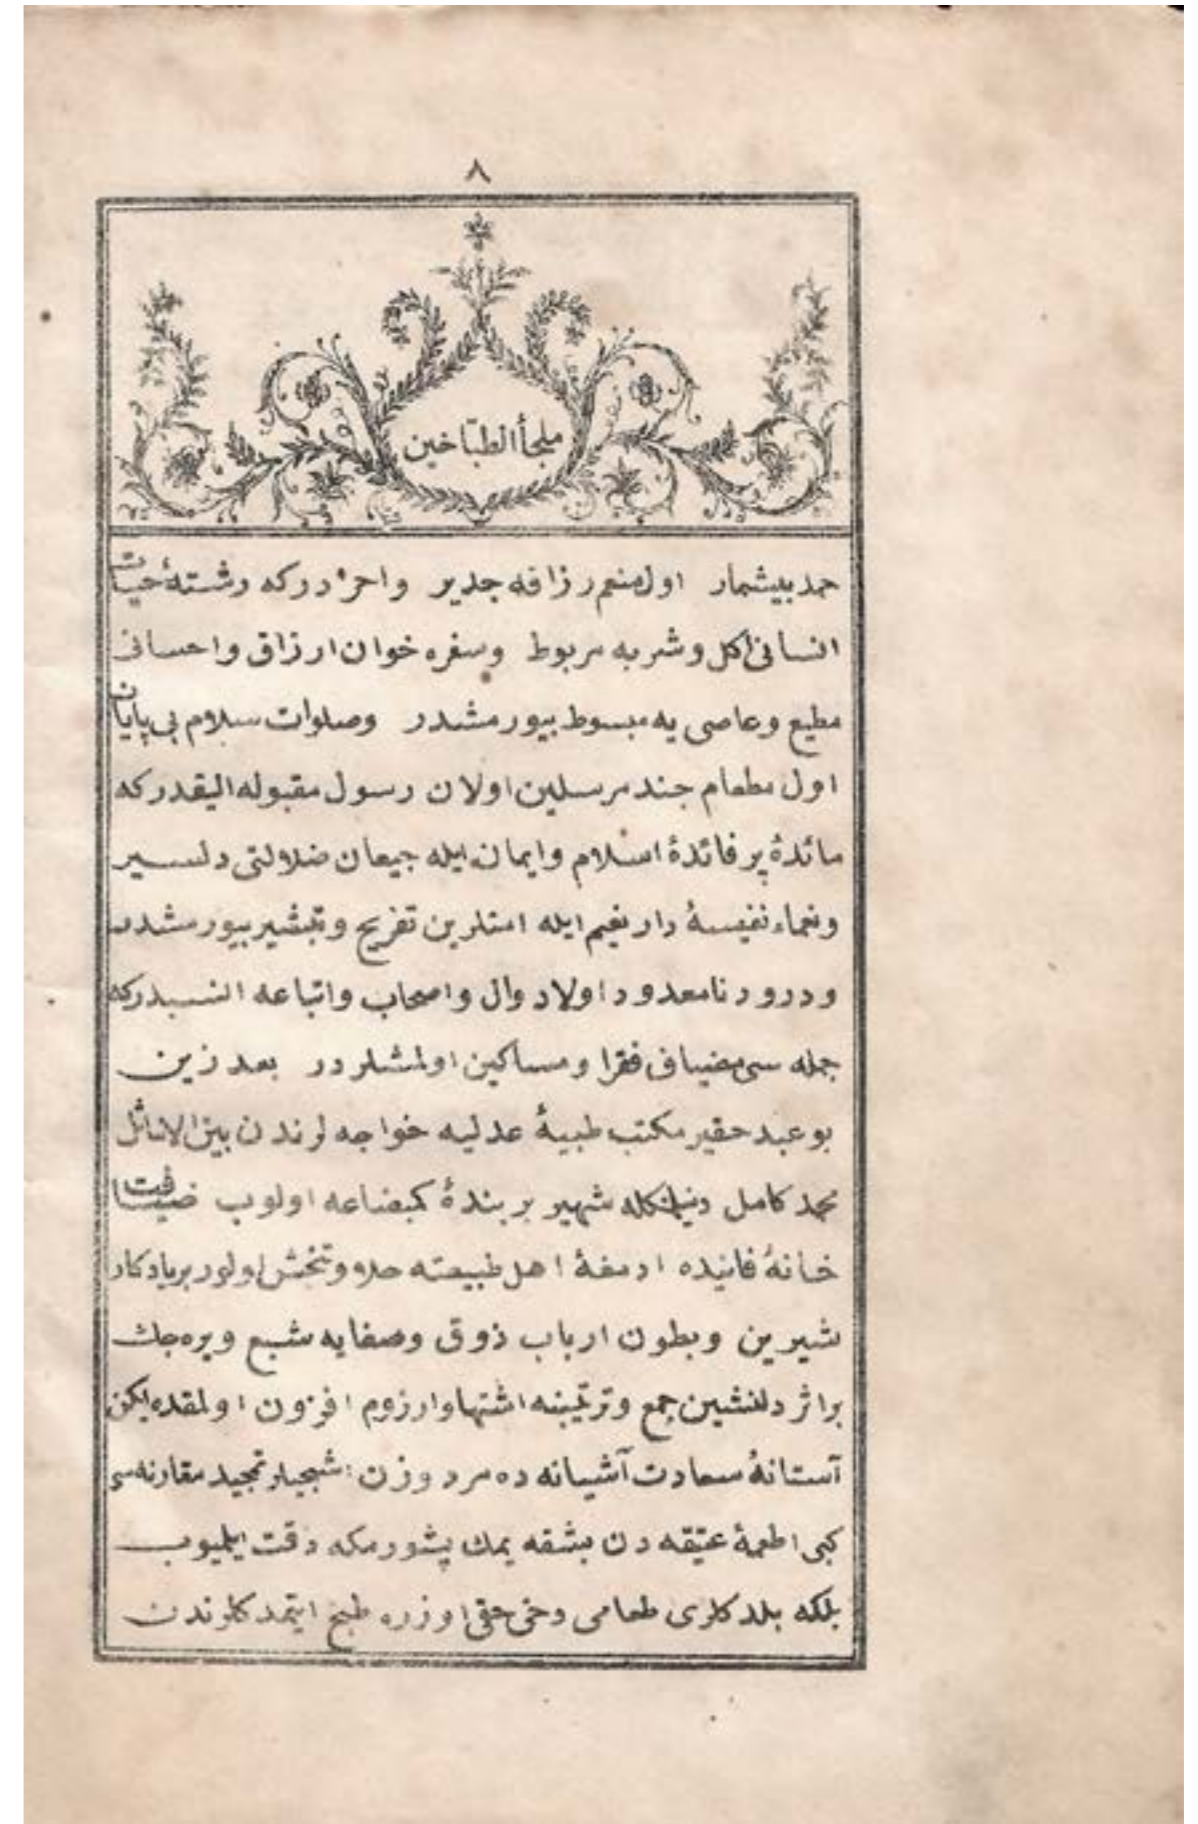 ٨
ملجأ الطبّاخین
حمد بیشمار اول منعم رزاقه جدیر واحرادر که رشتهٔ حیات
انسانی اکل وشربه مربوط وسفره خوان ارزاق واحسانی
مطیع وعاصی یه مبسوط بیورمشدر وصلوات سلام بی پایان
اول مطعام جند مرسلین اولان رسول مقبوله الیقدر که
مائدهٔ پر فائدهٔ اسلام وایمان ایله جیعان ضلالتی دلسیر
ونعماء نفیسهٔ دار نعیم ایله امتلرین تفریح وتبشیر بیورمشدر
ودرود نامعدود اولاد وال واصحاب واتباعه انسبدر که
جمله سی مضیاف فقرا ومساکین اولمشلردر بعد زین
بو عبد حقیر مکتب طبیهٔ عدلیه خواجه لرندن بین الاماثل
محمد کامل دنیلمکله شهیر بر بندهٔ کمبضاعه اولوب ضیافت
خانهٔ فانیده ادمغهٔ اهل طبیعته حلاوتبخش اولور بر یادکار
شیرین وبطون ارباب ذوق وصفایه شبع ویره جك
بر اثر دلنشین جمع وترتیبنه اشتها وارزوم افزون اولمقده ایکن
آستانهٔ سعادت آشیانه ده مرد وزن تمجید مقارنه سی
کبی اطعمهٔ عتیقه دن بشقه یمك پشورمکه دقت ایلمیوب
بلکه بلدکلری طعامی دخی حقی اوزره طبخ ایتمدکلرندن